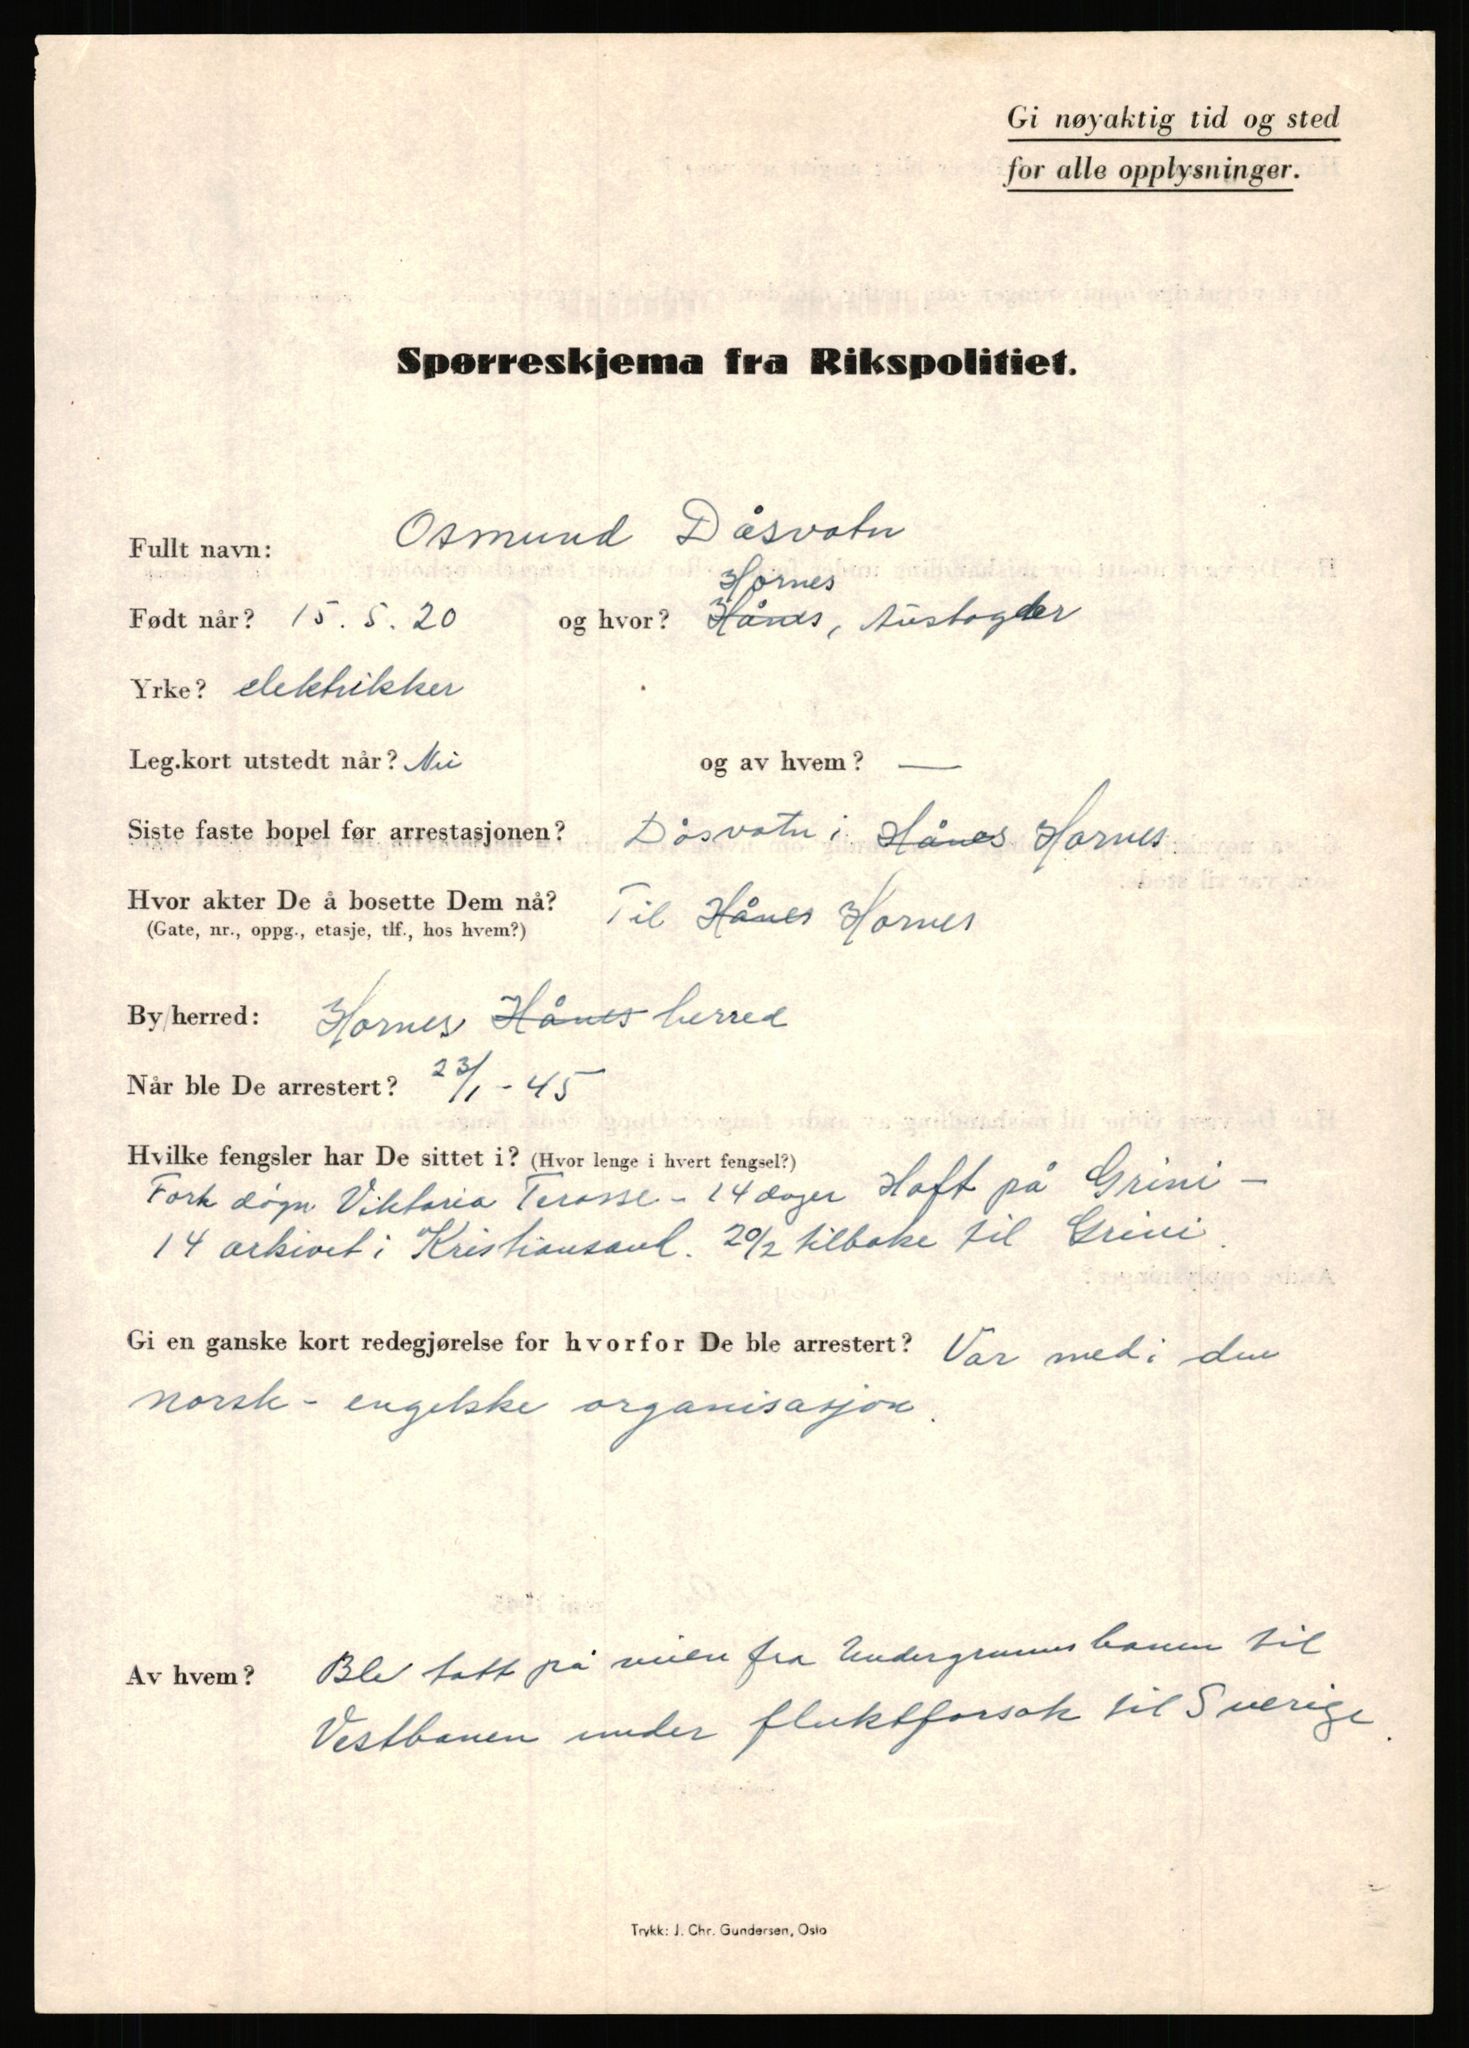 Gi nøyaktig tid og sted
for alle opplysninger.
Spørreskjema fra Rikspolitiet.
Fullt navn: Osmund Dåsvatn
Hornes
Født når? 15. 5. 20 og hvor? Hånes, Austagder
Yrke? elektrikker
Leg.kort utstedt når? Nei og av hvem? —
Siste faste bopel før arrestasjonen? Dåsvatn i Hånes Hornes
Hvor akter De å bosette Dem nå? Til Hånes Hornes
(Gate, nr., oppg., etasje, tlf., hos hvem?)
By/herred: Hornes Hånes herred
Når ble De arrestert? 23/1 - 45
Hvilke fengsler har De sittet i? (Hvor lenge i hvert fengsel?)
døgn Viktoria Terasse - 14 dager Haft på Grini -
14 arkivet i Kristiansand. 20/2 tilbake til Grini.
Gi en ganske kort redegjørelse for hvorfor De ble arrestert? Var med i den
norsk - engelske organisasjon.
Av hvem? Ble tatt på veien fra Undergrunnsbanen til
Vestbanen under fluktforsøk til Sverige.
Trykk: J. Chr. Gundersen, Oslo